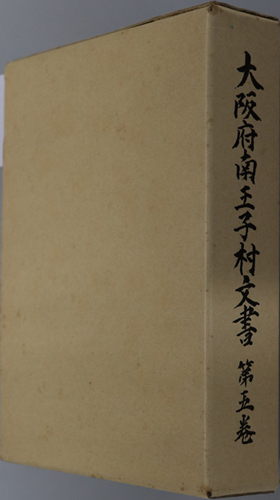 大阪府南王子村文書 第五巻